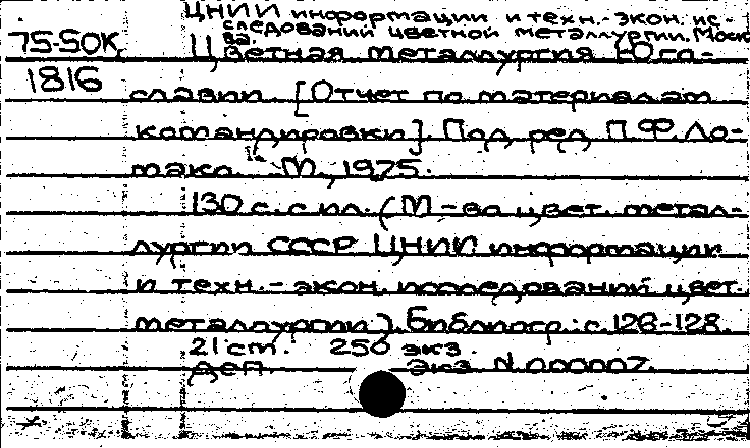 ЦНИИ информации и техн.-экон. ис-
следований цветной металлургии. Моск
ва.
75-50К
Цветная металлургия Юго-
1816
славии. [Отчет по материалам
командировки]. Под ред. П.Ф. Ло-
мако. М., 1975.
130 с. с ил. (М-во цвет. метал-
лургии СССР ЦНИИ информации
и техн.-экон. исследований цвет.
металлургии). Библиогр.: с. 126-128.
21 cm. 250 экз.
Деп. Экз. N 000007.